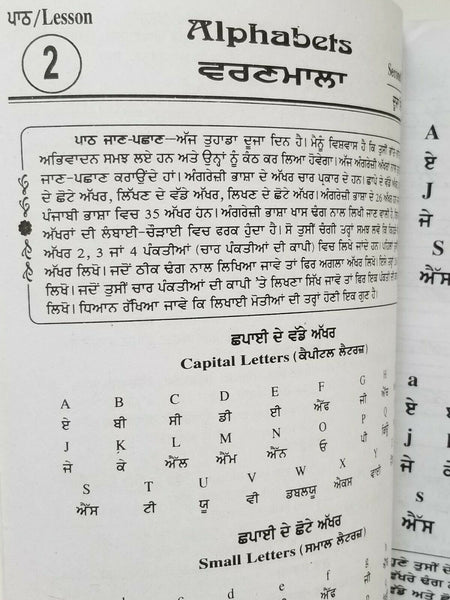 ਪਾਠ/Lesson
2
Alphabets
ਵਰਣਮਾਲਾ
ਪਾਠ ਜਾਣ-ਪਛਾਣ—ਅੱਜ ਤੁਹਾਡਾ ਦੂਜਾ ਦਿਨ ਹੈ। ਮੈਨੂੰ ਵਿਸ਼ਵਾਸ ਹੈ ਕਿ ਤੁਸੀਂ
ਅਭਿਵਾਦਨ ਸਮਝ ਲਏ ਹਨ ਅਤੇ ਉਨ੍ਹਾਂ ਨੂੰ ਕੰਠ ਕਰ ਲਿਆ ਹੋਵੇਗਾ। ਅੱਜ ਅੰਗਰੇਜ਼ੀ
ਜਾਣ-ਪਛਾਣ ਕਰਾਉਂਦੇ ਹਾਂ। ਅੰਗਰੇਜ਼ੀ ਭਾਸ਼ਾ ਦੇ ਅੱਖਰ ਚਾਰ ਪ੍ਰਕਾਰ ਦੇ ਹਨ। ਛਾਪੇ ਦੇ ਵੱਡੇ
ਦੇ ਛੋਟੇ ਅੱਖਰ, ਲਿੱਖਣ ਦੇ ਵੱਡੇ ਅੱਖਰ, ਲਿਖਣ ਦੇ ਛੋਟੇ ਅੱਖਰ। ਅੰਗਰੇਜ਼ੀ ਭਾਸ਼ਾ ਦੇ 26 ਅੱਖਰ
ਪੰਜਾਬੀ ਭਾਸ਼ਾ ਵਿਚ 35 ਅੱਖਰ ਹਨ। ਅੰਗਰੇਜ਼ੀ ਭਾਸ਼ਾ ਖਾਸ ਢੰਗ ਨਾਲ ਲਿਖੀ ਜਾਣ ਵਾਲੀ ਹੈ।
ਅੱਖਰਾਂ ਦੀ ਲੰਬਾਈ-ਚੌੜਾਈ ਵਿਚ ਫਰਕ ਹੁੰਦਾ ਹੈ। ਸੋ ਤੁਸੀਂ ਚੰਗੀ ਤਰ੍ਹਾਂ ਸਮਝ ਲਵੋ ਕਿ
ਅੱਖਰ 2, 3 ਜਾਂ 4 ਪੰਕਤੀਆਂ (ਚਾਰ ਪੰਕਤੀਆਂ ਦੀ ਕਾਪੀ) ਵਿਚ ਲਿਖੇ ਜਾਂਦੇ ਹਨ। ਪਹਿਲਾਂ
ਅੱਖਰ ਲਿਖੋ। ਜਦੋਂ ਠੀਕ ਢੰਗ ਨਾਲ ਲਿਖਿਆ ਜਾਵੇ ਤਾਂ ਫਿਰ ਅਗਲਾ ਅੱਖਰ ਲਿਖੋ। ਇਸੇ ਤਰ੍ਹਾਂ
ਲਿਖੋ। ਜਦੋਂ ਤੁਸੀਂ ਚਾਰ ਪੰਕਤੀਆਂ ਦੀ ਕਾਪੀ 'ਤੇ ਲਿਖਣਾ ਸਿੱਖ ਜਾਵੋ ਤਾਂ ਫਿਰ ਇਕ ਪੰਕਤੀ
ਲਿਖੋ। ਧਿਆਨ ਰੱਖਿਆ ਜਾਵੇ ਕਿ ਲਿਖਾਈ ਮੋਤੀਆਂ ਦੀ ਤਰ੍ਹਾਂ ਹੋਣੀ ਇਕ ਗੁਣ ਹੈ।
ਛਪਾਈ ਦੇ ਵੱਡੇ ਅੱਖਰ
Capital Letters (ਕੈਪੀਟਲ ਲੈਟਰਜ਼)
A B C D E F G H
ਏ ਬੀ ਸੀ ਡੀ ਈ ਐੱਫ ਜੀ
J K L M N O P Q
ਜੇ ਕੇ ਐੱਲ ਐੱਮ ਐੱਨ ਓ ਪੀ
S T U V W X Y
ਐੱਸ ਟੀ ਯੂ ਵੀ ਡਬਲਯੂ ਐਕਸ ਵਾਈ
ਛਪਾਈ ਦੇ ਛੋਟੇ ਅੱਖਰ
Small Letters (ਸਮਾਲ ਲੈਟਰਜ਼)
d e f g
A
ਏ
J
ਜੇ
S
ਐੱਸ
a
ਏ
j
ਜੇ
s
ਐੱਸ
ਹੁਣੇ ਤੁਸੀਂ